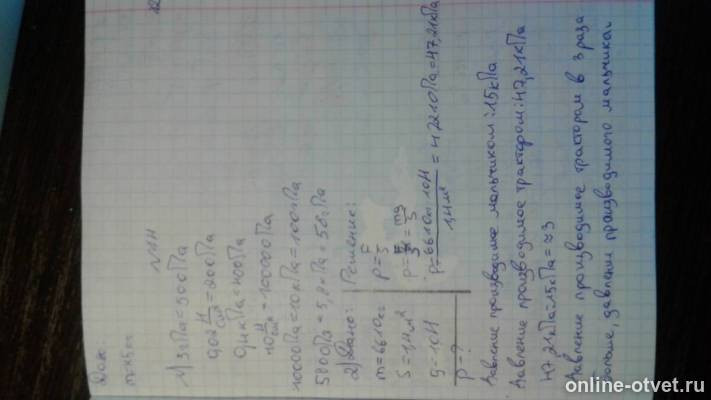 12
Дом.
№14
1) 3гПа=300Па
0,02 Н/см²=200Па
0,4кПа=400Па
10 Н/см²=100000Па
10000Па=10кПа=100гПа
5800Па=5,8кПа=58гПа
2) Дано:
m=6610кг
S=1,4м²
g=10Н
p-?
Решение:
p=F/S
p=F/S=mg/S
p=6610кг·10Н/1,4м²=47210Па=47,21кПа
Давление производимое мальчиком:15кПа
Давление производимое трактором:47,21кПа
47,21кПа:15кПа=≈3
Давление производимое трактором в 3 раза
больше, давление производимого мальчика.
online-otvet.ru